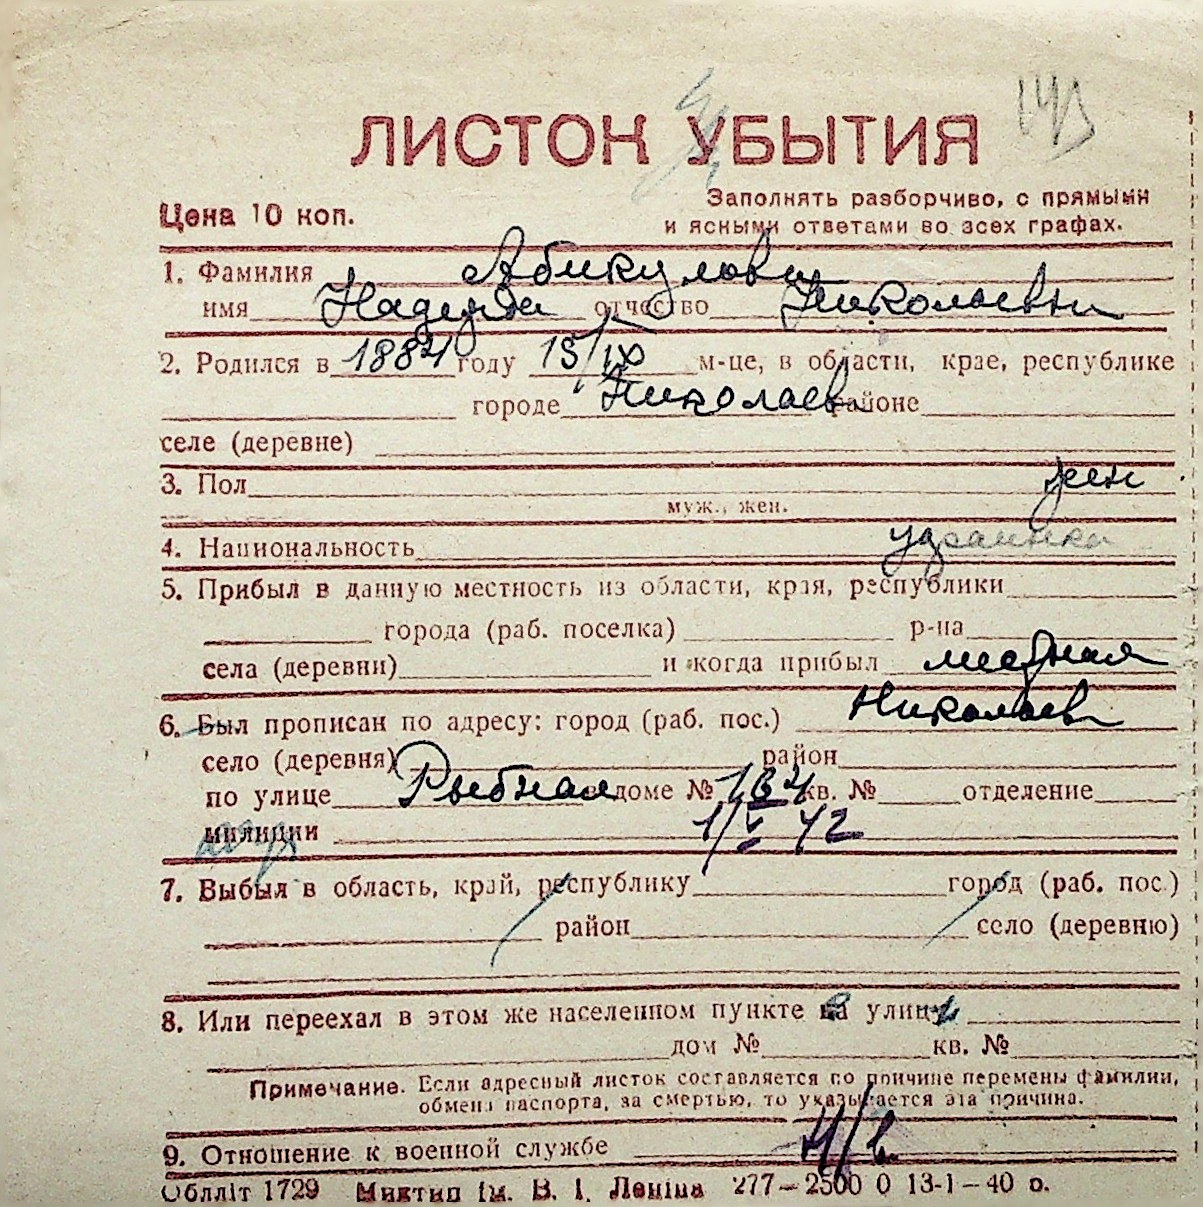 ЛИСТОК УБЫТИЯ
Цена 10 коп.
Заполнять разборчиво, с прямыми
и ясными ответами во всех графах.
1. Фамилия Абикулова
имя Надежда отчество Николаевна
2. Родился в 1884 году 15/IX м-це, в области, крае, республике
городе Николаев районе
селе (деревне)
3. Пол жен
муж., жен.
4. Национальность украинка
5. Прибыл в данную местность из области, края, республики
города (раб. поселка) р-на
села (деревни) и когда прибыл местная
6. Был прописан по адресу: город (раб. пос.) Николаев
село (деревня) район
по улице Рыбная доме № кв. № отделение
милиции 1/V 42
7. Выбыл в область, край, республику город (раб. пос.)
район село (деревню)
8. Или переехал в этом же населенном пункте на улицу
дом № кв. №
Примечание. Если адресный листок составляется по причине перемены фамилии,
обмена паспорта, за смертью, то указывается эта причина.
9. Отношение к военной службе н/в
Обллiт 1729 Миктип iм. В. I. Ленiна 277—2500 0 13-1—40 р.